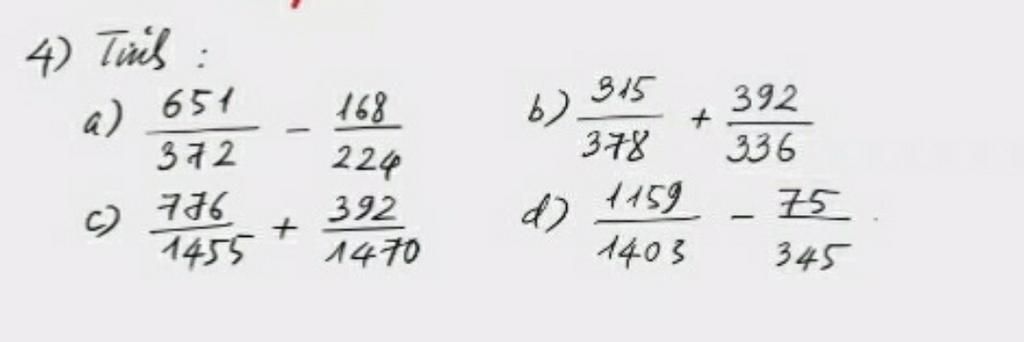 4) Tính :
a) 651/372 - 168/224 b) 315/378 + 392/336
c) 776/1455 + 392/1470 d) 1159/1403 - 75/345.